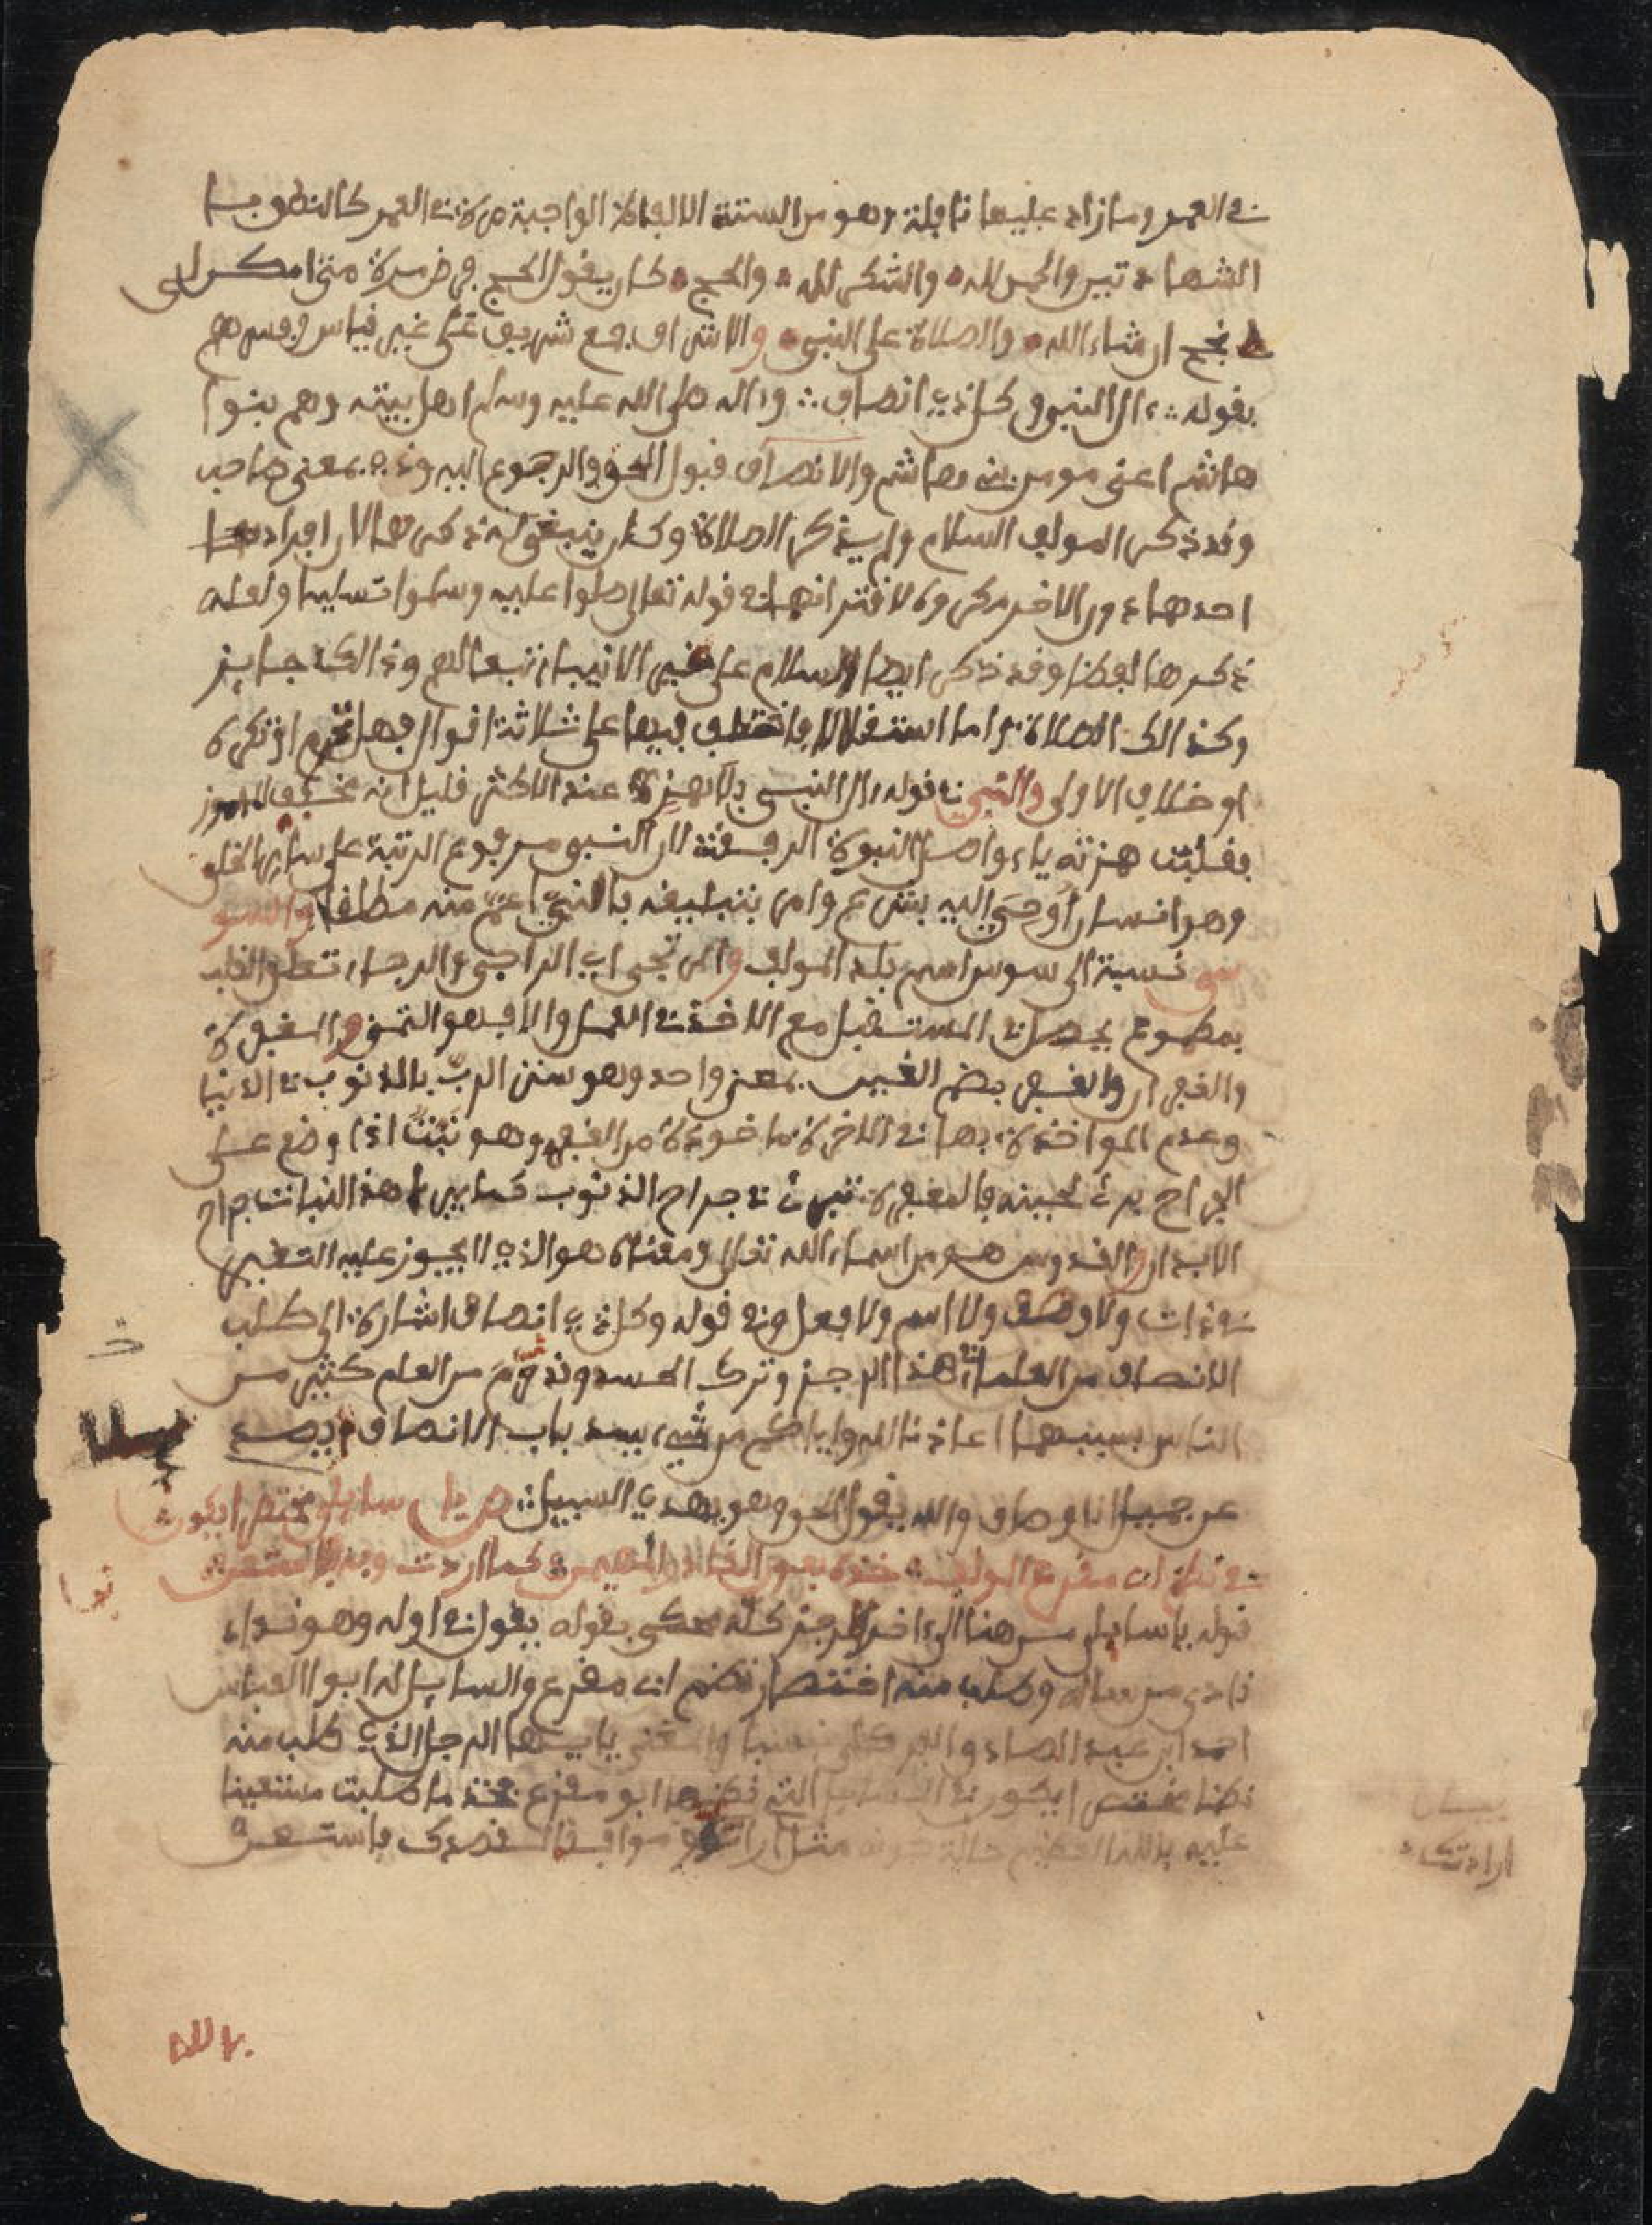 في العمر وما زاد عليها نافلة وهو من الستة الالفاظ الواجبة مرة في العمر كالنطق بـ
الشهادتين والحمد لله والشكر لله والحج كان يقول الحج فرض مرة متى امكن لي
نحج ان شاء الله والصلاة على النبي والاشراف جمع شريف على غير قياس وفسرهم
بقوله ءال النبي وكل ذي انصاف وءاله صلى الله عليه وسلم اهل بيته وهم بنوا
هاشم اعني مومن بني هاشم والانصاف قبول الحق والرجوع اليه وذي بمعنى صاحب
وقد ذكر المولف السلام ولم يذكر الصلاة وكان ينبغي له ذكرها لان افراد
احدهما دون الاخر مكروه لاقترانهما في قوله تعالى صلوا عليه وسلموا تسليما ولعله
ذكرها لفظا وقد ذكر ايضا السلام على غير الانبياء تبعا لهم وذالك جايز
وكذالك الصلاة واما استقلالا فاختلف فيها على ثلاثة اقوال فهل تحرم او تكره
او خلاف الاولى والنبي في قوله ءال النبي بلا همزة عند الاكثر قليل انه مخفف المهموز
فقلبت همزته ياء واصل النبوة الرفعة لان النبي مرفوع الرتبة على ساير الخلق
وهو انسان اوحي اليه بشرع وامر بتبليغه فالنبي اعم منه مطلقا والسو
سي نسبة الى سوس اسم بلد المولف والمرتجي اي الراجي والرجاء تعلق القلب
بمطموع يحصل في المستقبل مع الاخذ في العمل والا فهو التمني والمغفرة
والغفران والغفر بضم الغين بمعنى واحد وهو ستر الرب بالذنوب في الدنيا
وعدم المواخذة بها في الاخرة ماخوذة من الغفر وهو نبت اذا وضع على
الجراح برئ لحينه فالمغفرة تبرئ جراح الذنوب كما يبرئ هذا النبات جراح
الابدان والقدوس هو من اسماء الله تعالى ومعناه هو الذي لا يجوز عليه التغير
في ذات ولا وصف ولا اسم ولا فعل وفي قوله وكل ذي انصاف اشارة الى طلب
الانصاف من العلماء في هذا الرجز وترك الحسد وقد حرم من العلم كثير من
الناس بسببهما اعاذنا الله واياكم من شيء يسد باب الانصاف ويصد
عن جميل الاوصاف والله يقول الحق وهو يهدي السبيل يا سايلي مختصرا يكون
في نظم ابن مقرع المولف خذه بعون القادر المهيمن كما اردت وبه فاستعن
قوله يا سايلي من هنا الى ءاخر الرجز كله محكي بقوله يقول في اوله وهو نداء
نادى من ساله وطلب منه اختصار نظم ابن مقرع والسايل له ابو العباس
احمد ابن عبد الصادق نسبا يا ايها الرجل الذي طلب منه
نظما مختصرا يكون في التي نظمها ابو مقرع خذ ما طلبت مستعينا
عليه بالله العظيم حالة كونه مثل موافقا لقصدك فاستعن
بالله